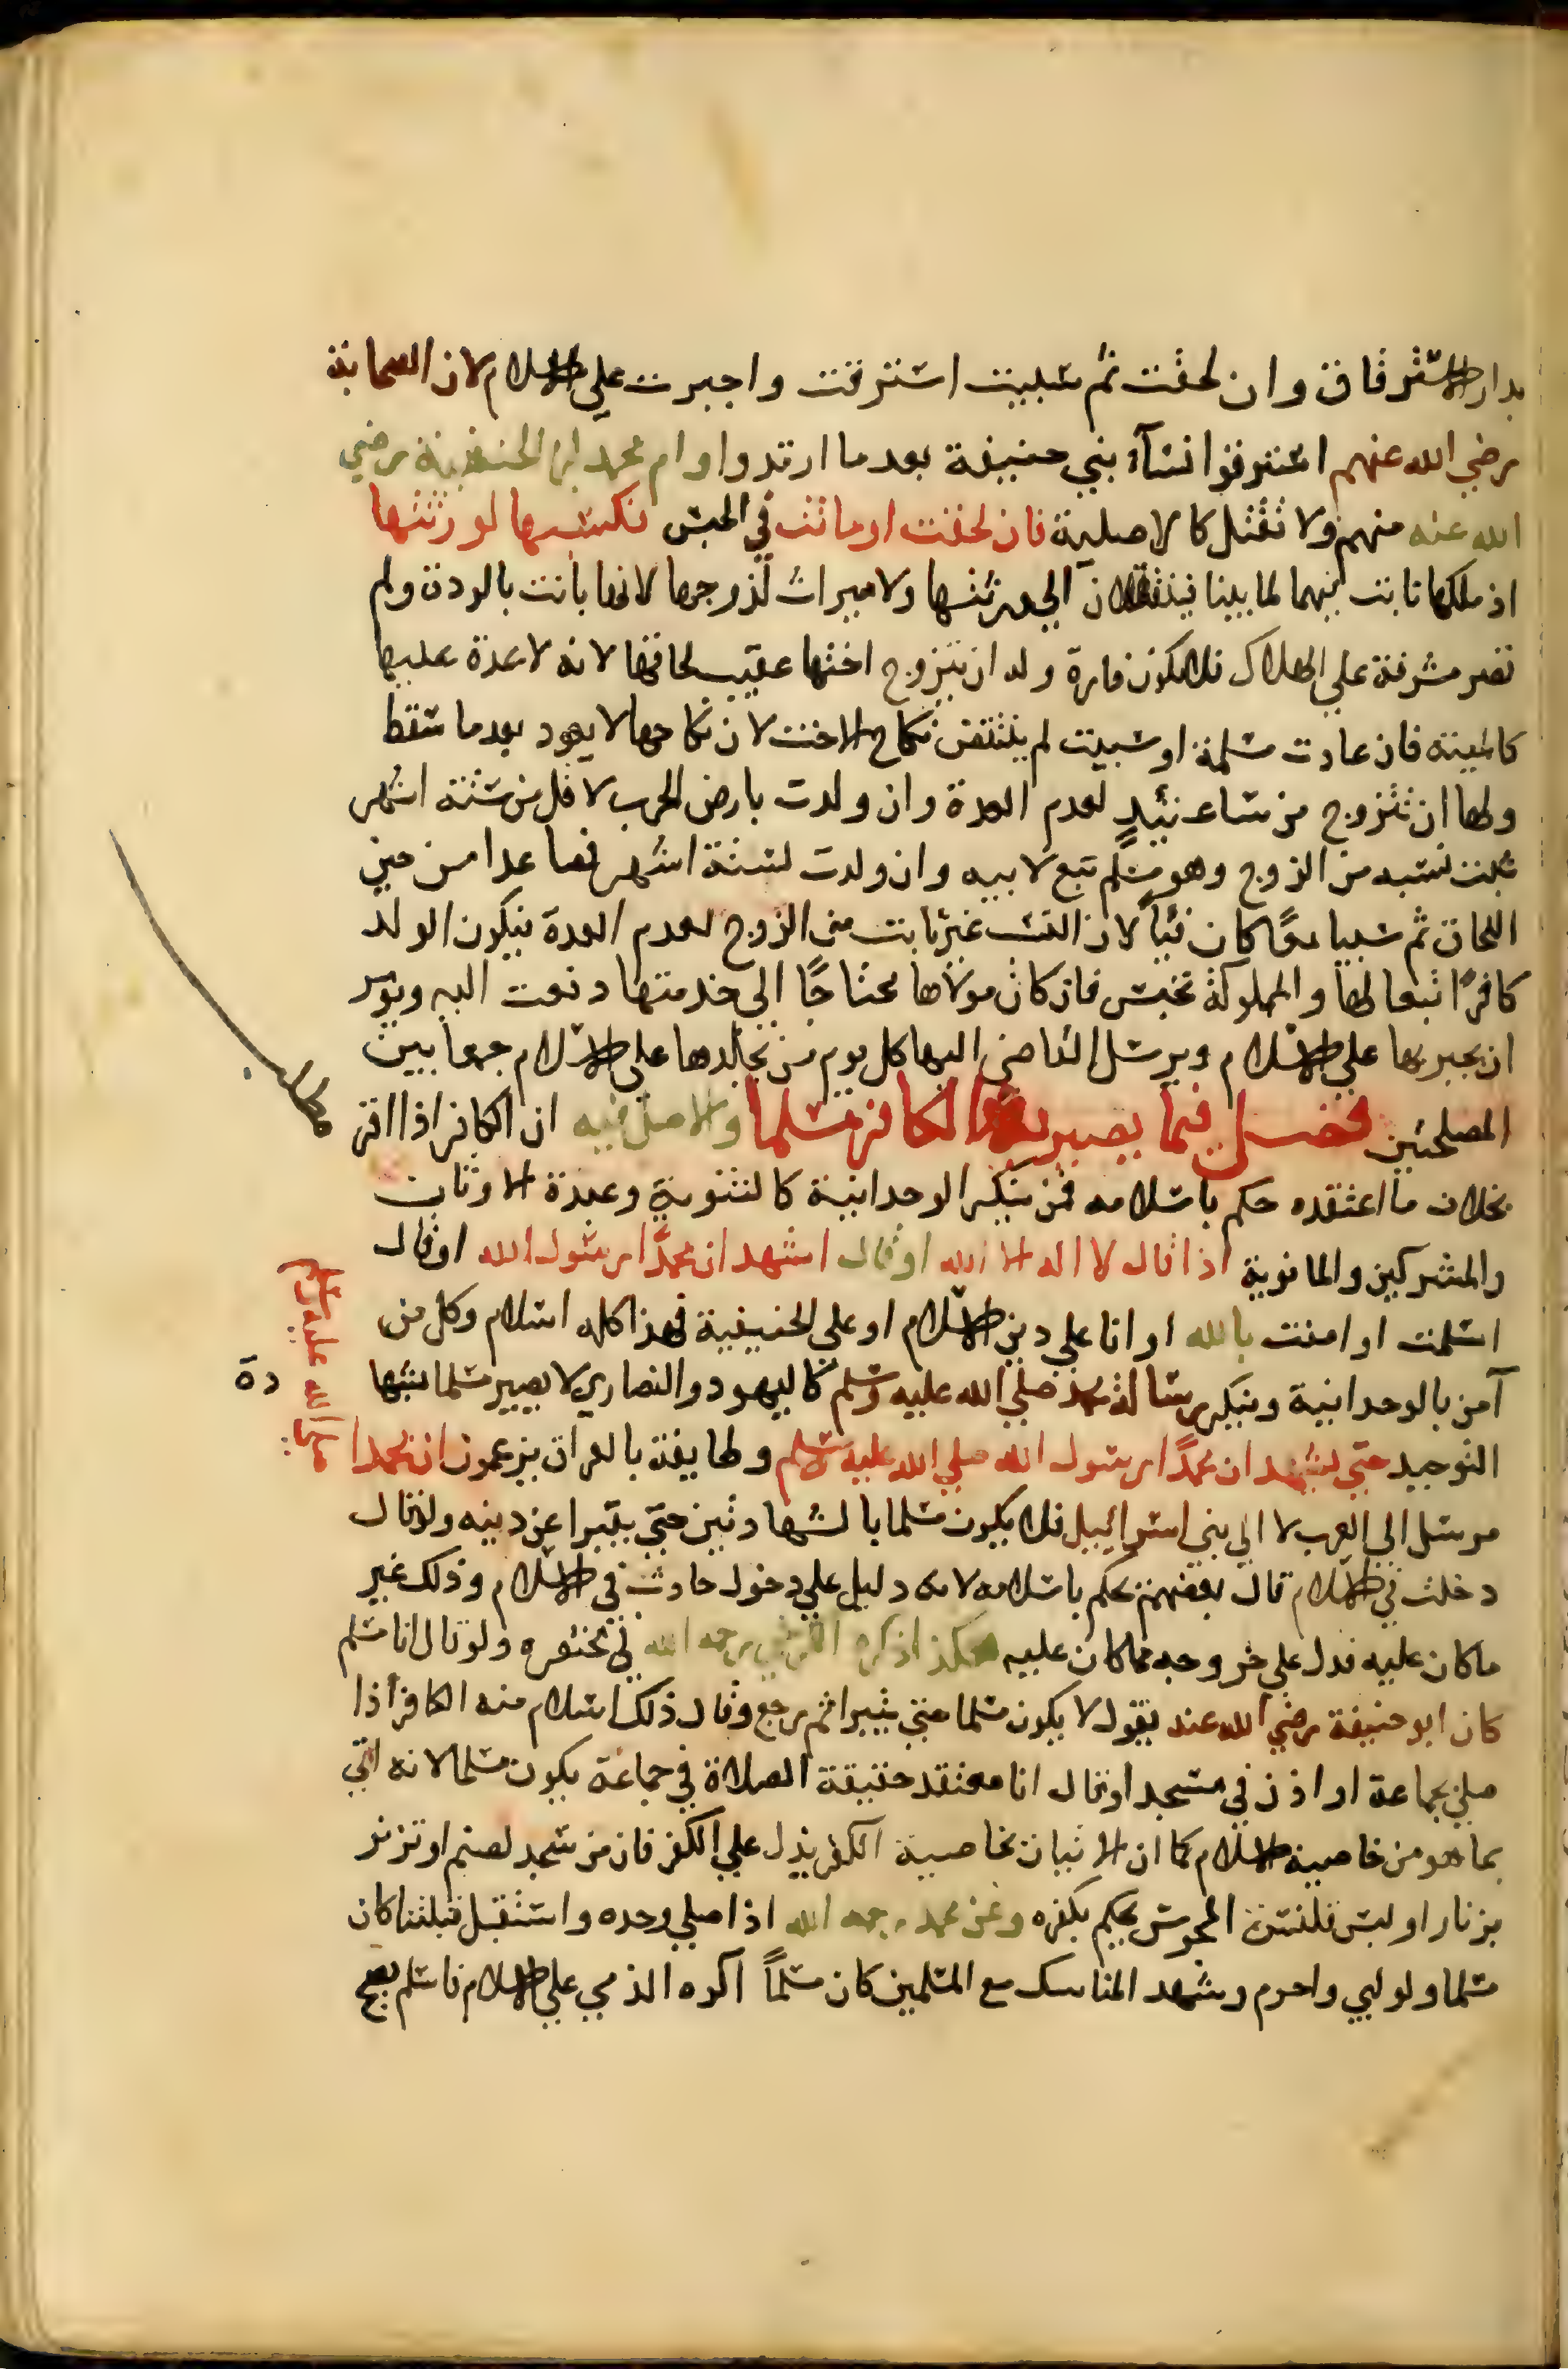 بدار الاسترقاق وان لحقت ثم سبيت استرقت واجبرت علي الاسلام لان الصحابة
رضي الله عنهم استرقوا نسآء بني حنيفة بعدما ارتدوا وام محمد ابن الحنفية رضي
الله عنه منهم ولا تقتل كالاصلية فان لحقت او ماتت في الحبس فكسبها لورثتها
اذ ملكها ثابت فيهما لما بينا فينتقلان الي ورثتها ولا ميراث لزوجها لانها بانت بالردة ولم
تصر مشرفة علي الهلاك فلا تكون فارة وله ان يتزوج اختها عقيب لحاقها لانه لا عدة عليها
كالميتة فان عادت مسلمة او سبيت لم ينتقض نكاح الاخت لان نكاحها لا يعود بعدما سقط
ولها ان تتزوج من ساعتئيذٍ لعدم العدة وان ولدت بارض الحرب لاقل من ستة اشهر
ثبت نسبه من الزوج وهو مسلم تبع لابيه وان ولدت لستة اشهر فصاعدا من حين
اللحاق ثم سبيا معًا كان فيًا لان النسب غير ثابت من الزوج لعدم العدة فيكون الولد
كافرًا تبعا لها والمملوكة تحبس فان كان مولاها محتاجًا الي خدمتها دفعت اليه ويؤمر
ان يجبرها علي الاسلام ويرسل القاضي اليها كل يوم من يجلدها علي الاسلام جمعا بين
المصلحتين فصل فيما يصير به الكافر مسلما والاصل فيه ان الكافر اذا اقر
بخلاف ما اعتقده حكم باسلامه فمن ينكر الوحدانية كالثنوية وعبدة الاوثان
والمشركين والمانوية اذا قال لا اله الا الله او قال اشهد ان محمدًا رسول الله او قال
اسلمت او امنت بالله او انا علي دين الاسلام او علي الحنيفية فهذا كله اسلام وكل من
آمن بالوحدانية وينكر رسالة محمد صلي الله عليه وسلم كاليهود والنصاري لا يصير مسلما بشها دة
التوحيد حتي يشهد ان محمدًا رسول الله صلي الله عليه وسلم وطايفة بالعراق يزعمون ان محمدا صلي الله عليه وسلم
مرسل الي العرب لا الي بني اسرائيل فلا يكون مسلما بالشهادتين حتي يتبرا عن دينه ولو قال
دخلت في الاسلام قال بعضهم يحكم باسلامه لانه دليل علي دخول حادث في الاسلام وذلك غير
ما كان عليه فدل علي خروجه مما كان عليه هكذا ذكره الكرخي رحمه الله في مختصره ولو قال انا مسلم
كان ابو حنيفة رضي الله عنه يقول لا يكون مسلما حتي يتبرا ثم رجع وقال ذلك اسلام منه الكافر اذا
صلي بجماعة او اذن في مسجد او قال انا معتقد حقيقة الصلاة في جماعة يكون مسلما لانه اتي
بما هو من خاصية الاسلام كما ان الاتيان بخاصية الكفر يدل علي الكفر فان من سجد لصنم او تزنر
بزنار او لبس قلنسوة المجوس يحكم بكفره وعن محمد رحمه الله اذا صلي وحده واستقبل قبلتنا كان
مسلما ولو لبي واحرم وشهد المناسك مع المسلمين كان مسلماً اكره الذمي علي الاسلام فاسلم يصح
مطلب